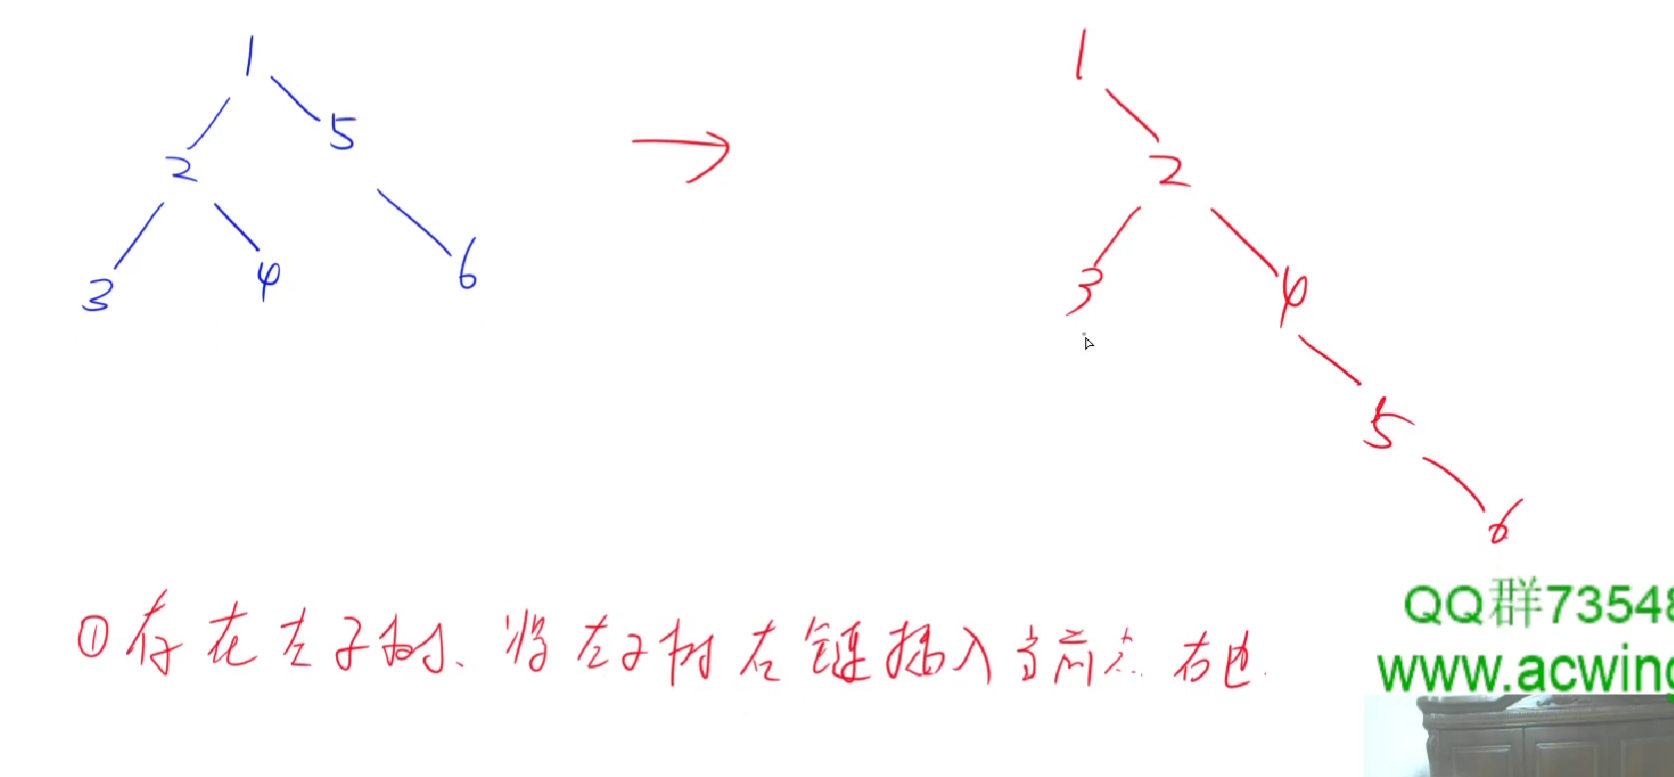 1
1
5
2
2
3
4
6
3
4
5
6
①存在左子树、将左子树右链插入当前点右边.
QQ群73548
www.acwing